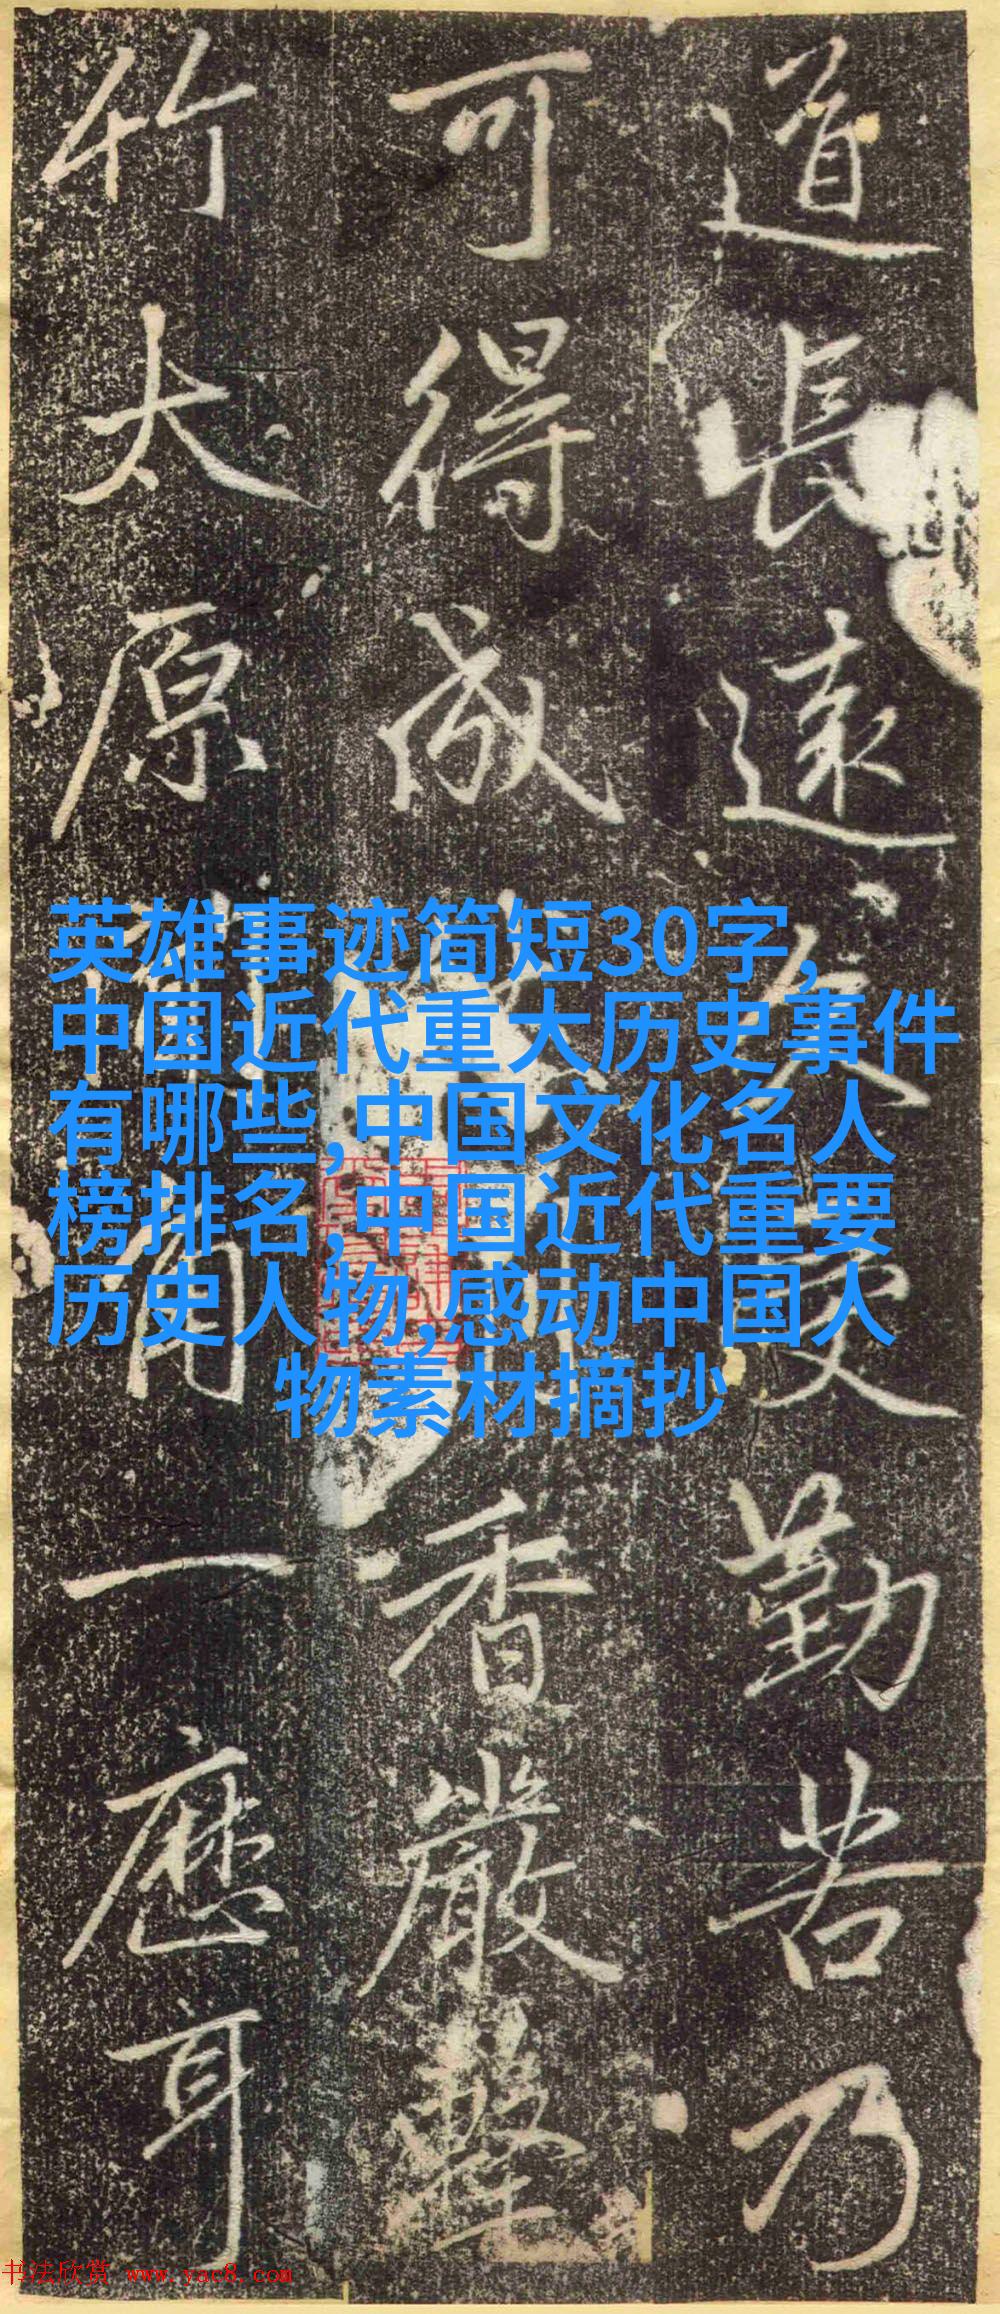 道長遠久受勤苦乃
可得成香嚴擊
竹太原角一應耳
英雄事迹简短30字,
中国近代重大历史事件
有哪些,中国文化名人
榜排名,中国近代重要
历史人物,感动中国人
物素材摘抄
书法欣赏 www.yac8.com